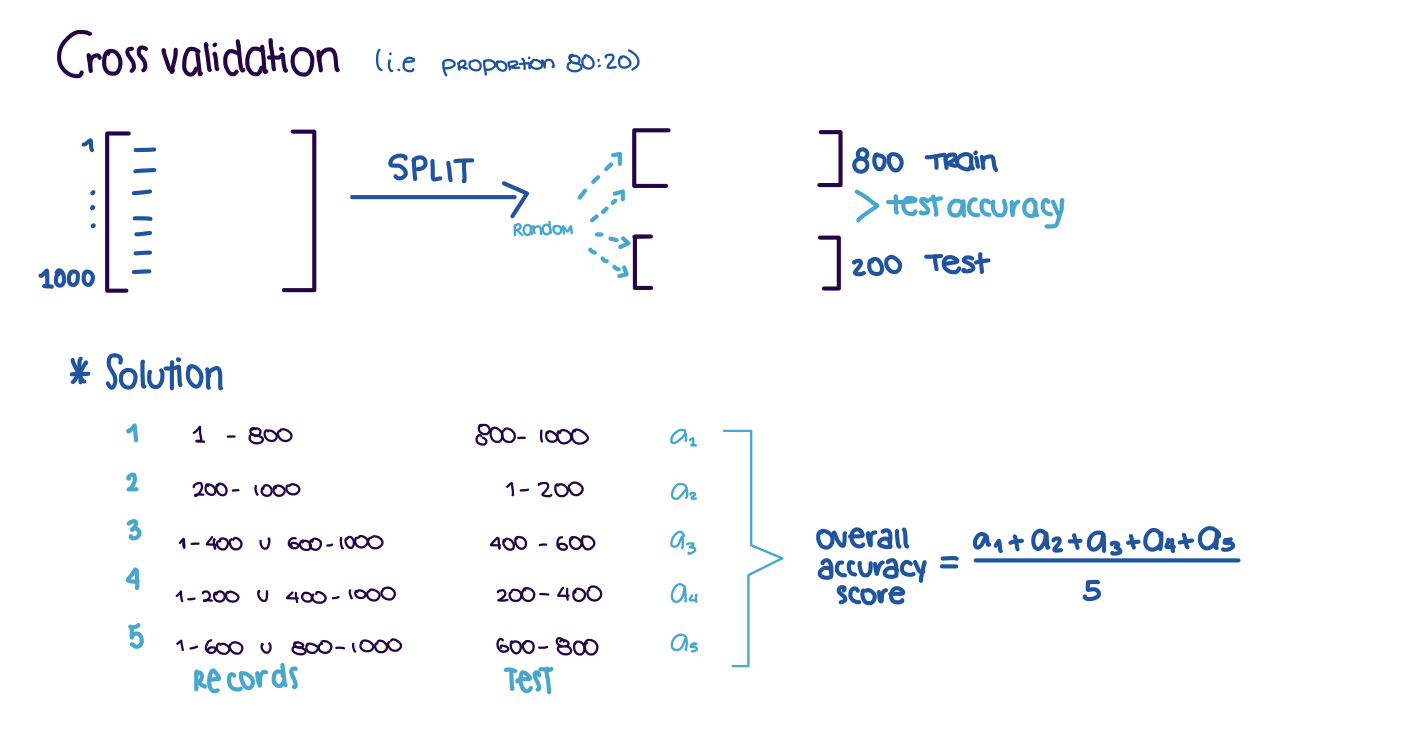 Cross validation (i.e proportion 80:20)
1
SPLIT
800 Train
> test accuracy
Random
:
1000
200 Test
* Solution
1 1 - 800 800 - 1000 a1
2 200 - 1000 1 - 200 a2
3 1 - 400 ∪ 600 - 1000 400 - 600 a3
4 1 - 200 ∪ 400 - 1000 200 - 400 a4
5 1 - 600 ∪ 800 - 1000 600 - 800 a5
Records Test
overall
accuracy
score
=
a1 + a2 + a3 + a4 + a5
5